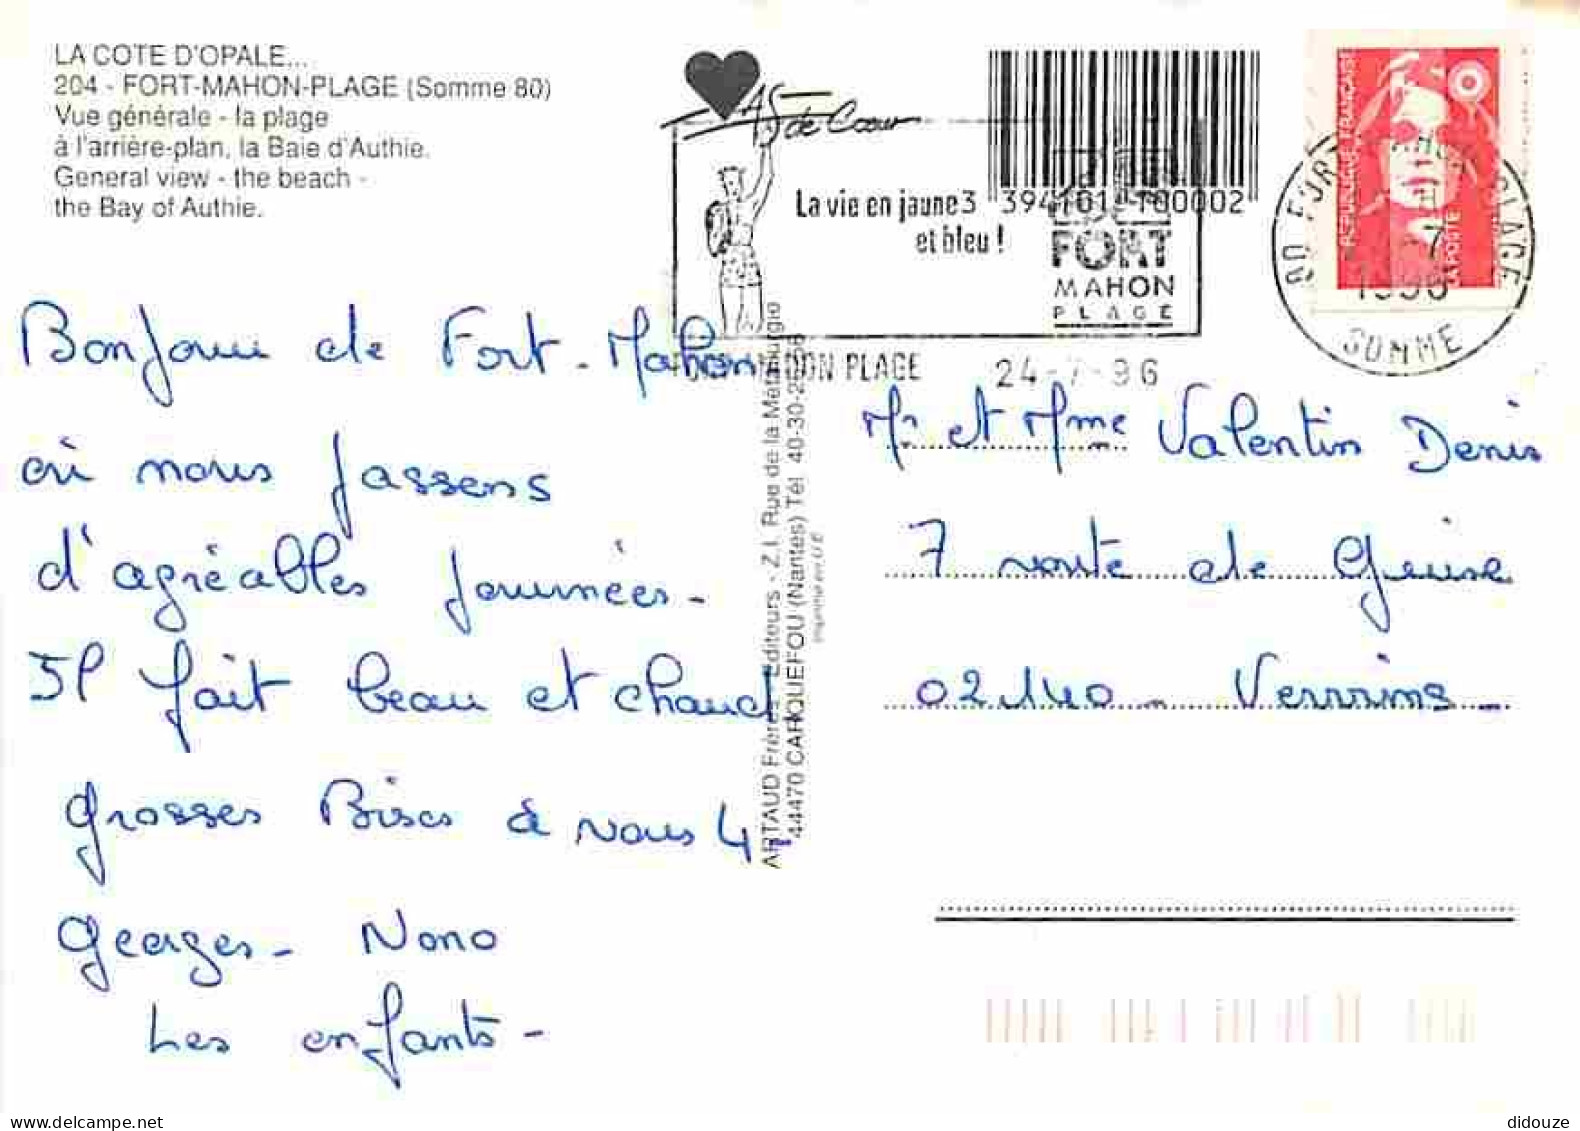 LA COTE D'OPALE...
204 - FORT-MAHON-PLAGE (Somme 80)
Vue générale - la plage
à l'arrière-plan, la Baie d'Authie.
General view - the beach -
the Bay of Authie.
AS de Cœur
La vie en jaune
et bleu !
3 394101 100002
FORT
MAHON
PLAGE
MAHON PLAGE
24-7-96
REPUBLIQUE FRANÇAISE
LA POSTE
PLAGE
1996
SOMME
Bonjour de Fort-Mahon
où nous passons
d'agréables journées-
Il fait beau et chaud
grosses Bises à vous 4
Georges- Nono
Les enfants-
ARTAUD Frères - Editeurs - Z.I. Rue de la Métallurgie
44470 CARQUEFOU (Nantes) Tél 40-30-
Imprimé en U.E.
Mr et Mme Valentin Denis
7 route de Guise
02140 - Vervins -
didouze